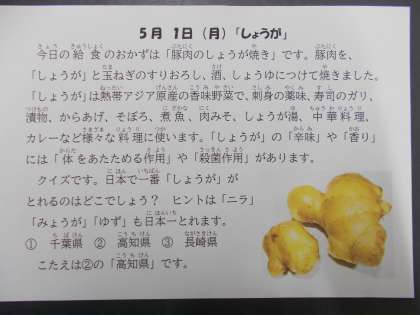 5月 1日(月)「しょうが」
今日の給食のおかずは「豚肉のしょうが焼き」です。豚肉を、
「しょうが」と玉ねぎのすりおろし、酒、しょうゆにつけて焼きました。
「しょうが」は熱帯アジア原産の香味野菜で、刺身の薬味、寿司のガリ、
漬物、からあげ、そぼろ、煮魚、肉みそ、しょうが湯、中華料理、
カレーなど様々な料理に使います。「しょうが」の「辛味」や「香り」
には「体をあたためる作用」や「殺菌作用」があります。
クイズです。日本で一番「しょうが」が
とれるのはどこでしょう? ヒントは「ニラ」
「みょうが」「ゆず」も日本一とれます。
① 千葉県 ② 高知県 ③ 長崎県
こたえは②の「高知県」です。